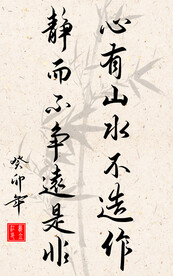 心有山水不造作
静而不争远是非
癸卯年